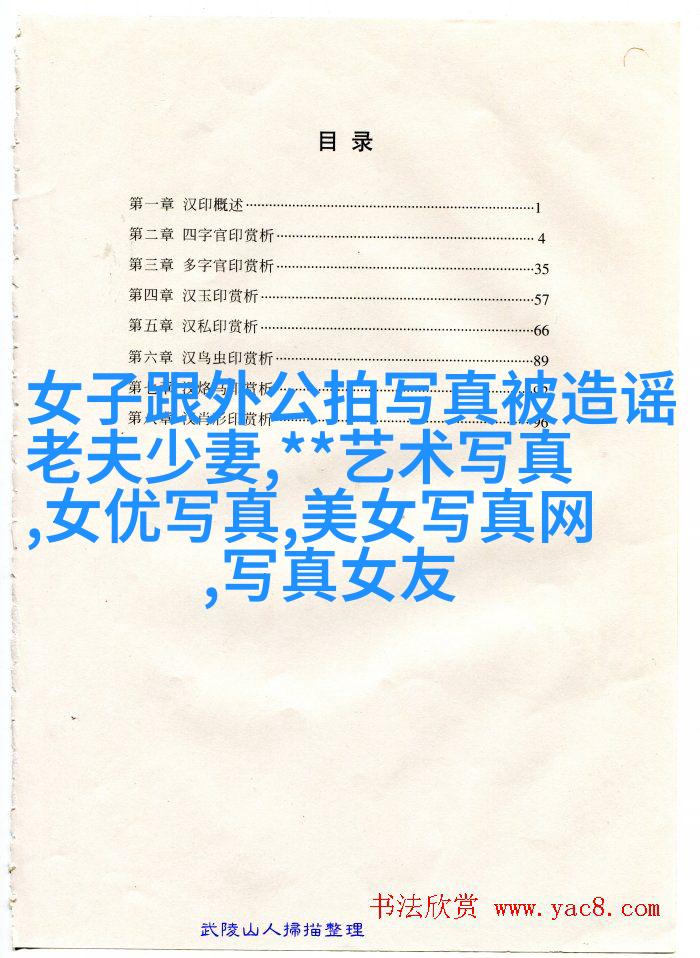 目 录
第一章 汉印概述 1
第二章 四字官印赏析 4
第三章 多字官印赏析 35
第四章 汉玉印赏析 57
第五章 汉私印赏析 66
第六章 汉鸟虫印赏析 89
第七章 汉烙马印赏析 92
第八章 汉肖形印赏析 96
女子跟外公拍写真被造谣
老夫少妻,**艺术写真
,女优写真,美女写真网
,写真女友
书法欣赏 www.yac8.com
武陵山人掃描整理